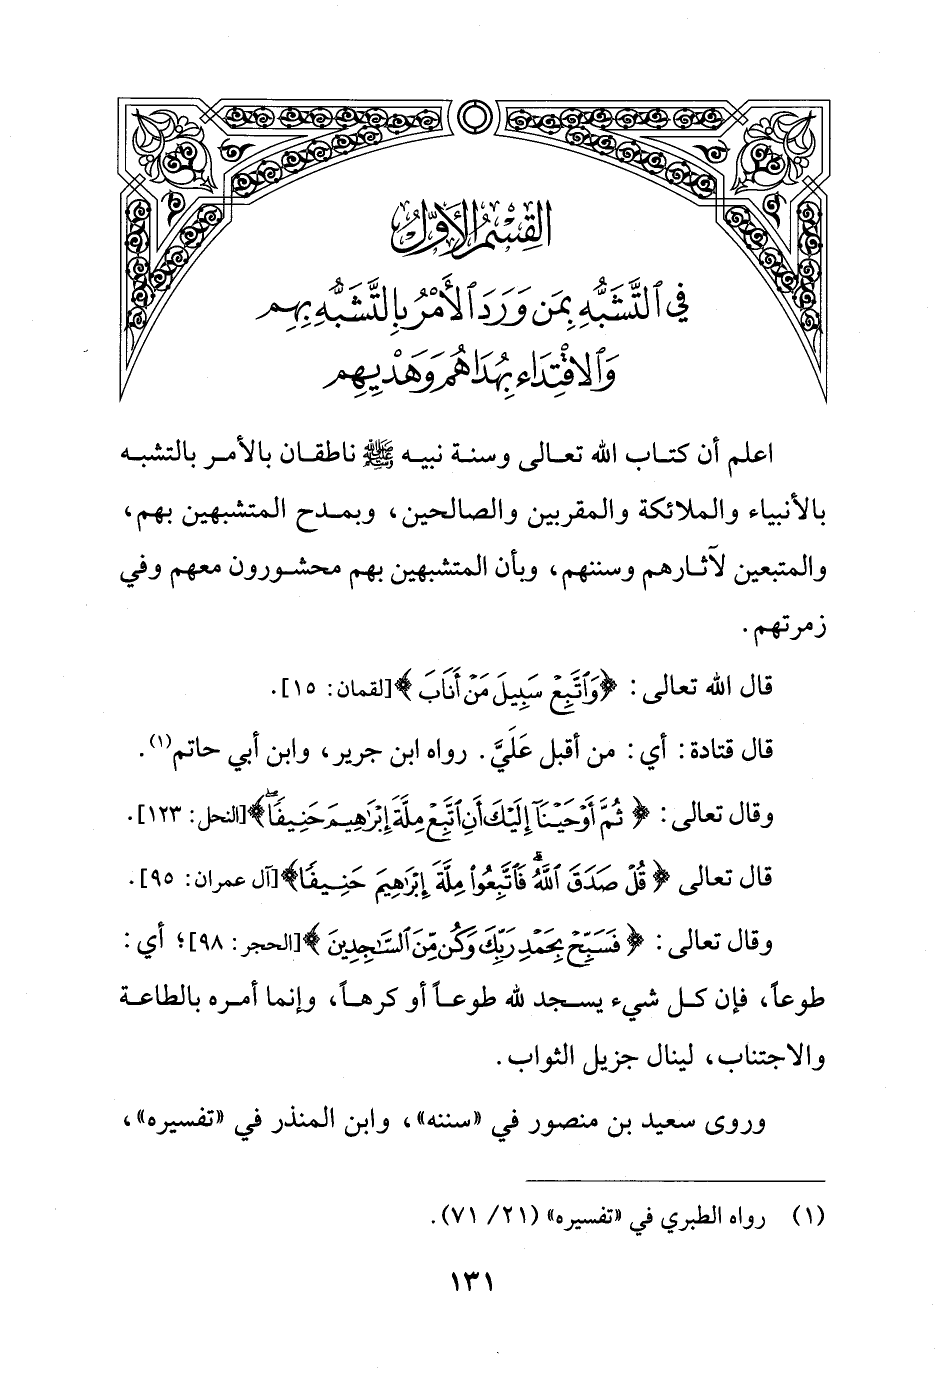 القِسْمُ الأَوَّلُ
فِي ٱلتَّشَبُّهِ بِمَن وَرَدَ ٱلأَمْرُ بِالتَّشَبُّهِ بِهِم
وَٱلاقْتِدَاءِ بِهُدَاهُم وَهَدْيِهِم
اعلم أن كتاب الله تعالى وسنة نبيه ﷺ ناطقان بالأمر بالتشبه
بالأنبياء والملائكة والمقربين والصالحين، وبمدح المتشبهين بهم،
والمتبعين لآثارهم وسننهم، وبأن المتشبهين بهم محشورون معهم وفي
زمرتهم.
قال الله تعالى: ﴿وَٱتَّبِعْ سَبِيلَ مَنْ أَنَابَ﴾[لقمان: ١٥].
قال قتادة: أي: من أقبل عَلَيَّ. رواه ابن جرير، وابن أبي حاتم(١).
وقال تعالى: ﴿ثُمَّ أَوْحَيْنَآ إِلَيْكَ أَنِ ٱتَّبِعْ مِلَّةَ إِبْرَاهِيمَ حَنِيفًا ۖ﴾[النحل: ١٢٣].
قال تعالى ﴿قُلْ صَدَقَ ٱللَّهُ ۗ فَٱتَّبِعُوا۟ مِلَّةَ إِبْرَاهِيمَ حَنِيفًا﴾[آل عمران: ٩٥].
وقال تعالى: ﴿فَسَبِّحْ بِحَمْدِ رَبِّكَ وَكُن مِّنَ ٱلسَّاجِدِينَ﴾[الحجر: ٩٨]؛ أي:
طوعاً، فإن كل شيء يسجد لله طوعاً أو كرهاً، وإنما أمره بالطاعة
والاجتناب، لينال جزيل الثواب.
وروى سعيد بن منصور في «سننه»، وابن المنذر في «تفسيره»،
(١) رواه الطبري في «تفسيره» (٢١/ ٧١).
١٣١